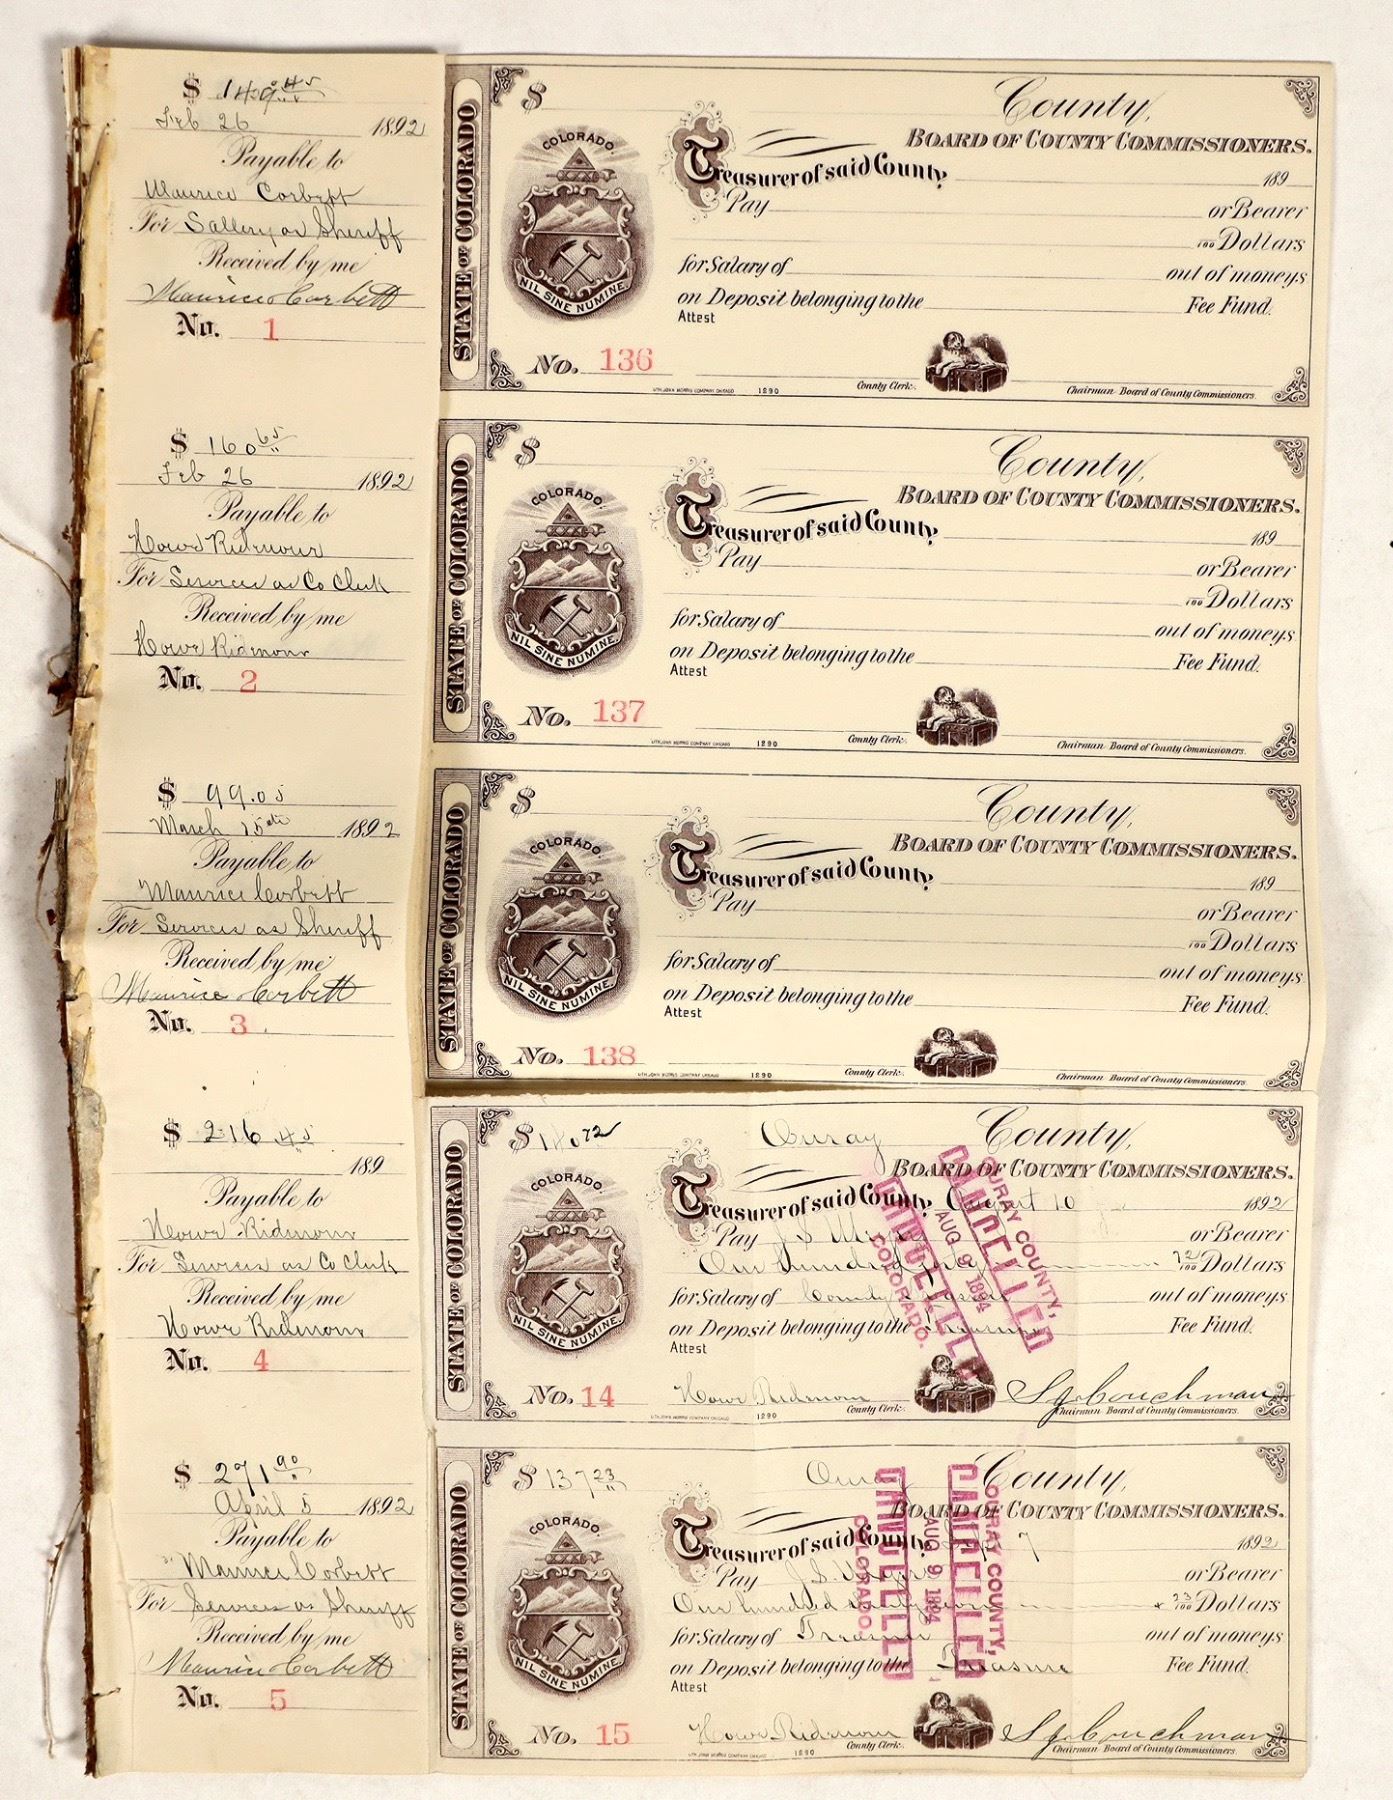 $ 149.45
Feb 26 1892
Payable to
Maurice Corbett
For Sallery as Sheriff
Received by me
Maurice Corbett
No. 1
$ 160 65
Feb 26 1892
Payable to
Howe Ridmour
For Services as Co Clerk
Received by me
Howe Ridmour
No. 2
$ 99.05
March 15th 1892
Payable to
Maurice Corbett
For Services as Sheriff
Received by me
Maurice Corbett
No. 3
$ 216 45
189
Payable to
Howe Ridmour
For Services as Co Clerk
Received by me
Howe Ridmour
No. 4
$ 271 90
April 5 1892
Payable to
Maurice Corbett
For Services as Sheriff
Received by me
Maurice Corbett
No. 5
STATE OF COLORADO
$
County,
BOARD OF COUNTY COMMISSIONERS.
COLORADO
Treasurer of said County
189
Pay or Bearer
100 Dollars
for Salary of out of moneys
NIL SINE NUMINE.
on Deposit belonging to the Fee Fund.
Attest
No. 136
LITH. JOHN MORRIS COMPANY CHICAGO 1890
County Clerk.
Chairman Board of County Commissioners.
STATE OF COLORADO
$
County,
BOARD OF COUNTY COMMISSIONERS.
COLORADO
Treasurer of said County
189
Pay or Bearer
100 Dollars
for Salary of out of moneys
NIL SINE NUMINE.
on Deposit belonging to the Fee Fund.
Attest
No. 137
LITH. JOHN MORRIS COMPANY CHICAGO 1890
County Clerk.
Chairman Board of County Commissioners.
STATE OF COLORADO
$
County,
BOARD OF COUNTY COMMISSIONERS.
COLORADO.
Treasurer of said County
189
Pay or Bearer
100 Dollars
for Salary of out of moneys
NIL SINE NUMINE.
on Deposit belonging to the Fee Fund.
Attest
No. 138
LITH. JOHN MORRIS COMPANY CHICAGO 1890
County Clerk.
Chairman Board of County Commissioners.
STATE OF COLORADO
$ 180 72
Ouray County,
BOARD OF COUNTY COMMISSIONERS.
COLORADO.
Treasurer of said County August 10 1892
Pay J. S. or Bearer
One hundred eighty 72/100 Dollars
for Salary of County out of moneys
NIL SINE NUMINE.
on Deposit belonging to the Treasure Fee Fund.
Attest
No. 14
Howe Ridmour
LITH. JOHN MORRIS COMPANY CHICAGO 1890
County Clerk.
S. J. Couchman
Chairman Board of County Commissioners.
OURAY COUNTY,
CANCELLED
AUG 9 1894
CANCELLED
COLORADO.
STATE OF COLORADO
$ 137 23
Ouray County,
BOARD OF COUNTY COMMISSIONERS.
COLORADO.
Treasurer of said County 7 1892
Pay J. S. or Bearer
One hundred thirty seven 23/100 Dollars
for Salary of Treasurer out of moneys
NIL SINE NUMINE.
on Deposit belonging to the Treasure Fee Fund.
Attest
No. 15
Howe Ridmour
LITH. JOHN MORRIS COMPANY CHICAGO 1890
County Clerk.
S. J. Couchman
Chairman Board of County Commissioners.
OURAY COUNTY,
CANCELLED
AUG 9 1894
CANCELLED
COLORADO.